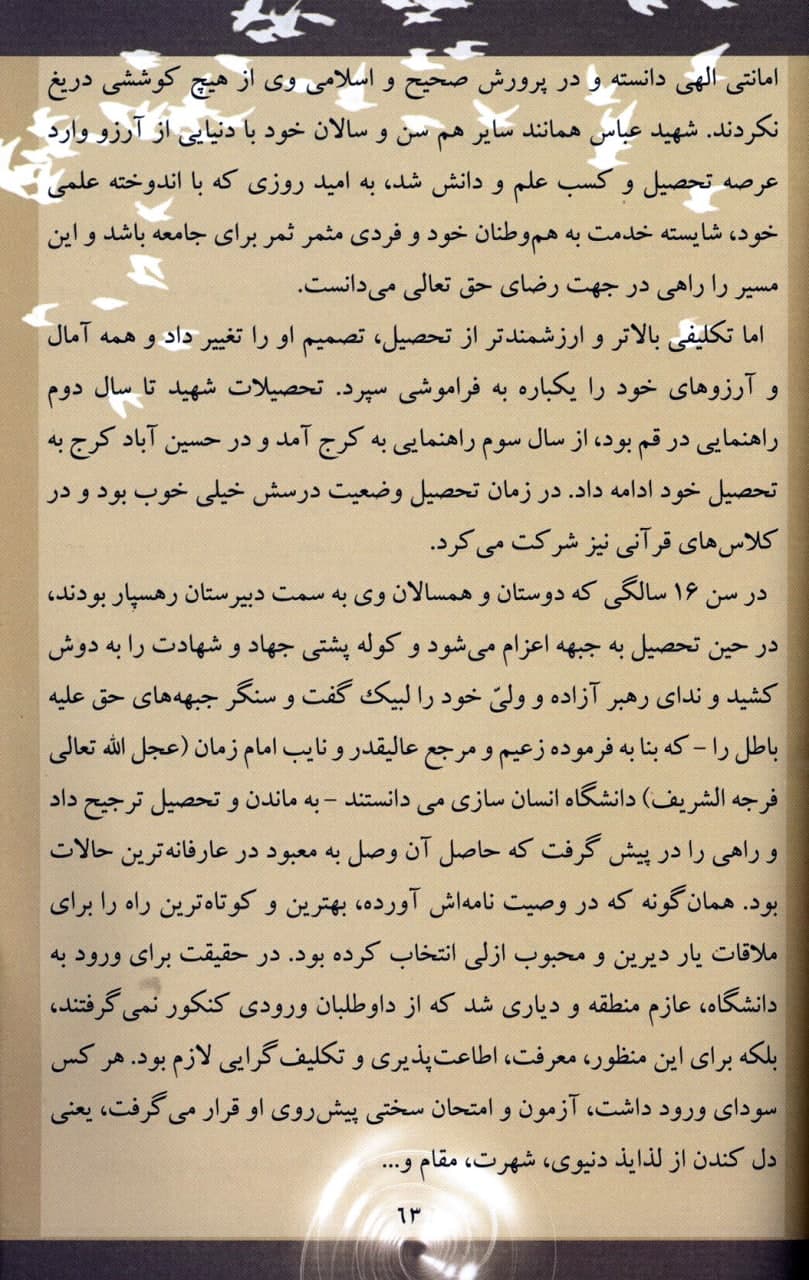 امانتی الهی دانسته و در پرورش صحیح و اسلامی وی از هیچ کوششی دریغ
نکردند. شهید عباس همانند سایر هم سن و سالان خود با دنیایی از آرزو وارد
عرصه تحصیل و کسب علم و دانش شد، به امید روزی که با اندوخته علمی
خود، شایسته خدمت به هم‌وطنان خود و فردی مثمر ثمر برای جامعه باشد و این
مسیر را راهی در جهت رضای حق تعالی می‌دانست.
اما تکلیفی بالاتر و ارزشمندتر از تحصیل، تصمیم او را تغییر داد و همه آمال
و آرزوهای خود را یکباره به فراموشی سپرد. تحصیلات شهید تا سال دوم
راهنمایی در قم بود، از سال سوم راهنمایی به کرج آمد و در حسین آباد کرج به
تحصیل خود ادامه داد. در زمان تحصیل وضعیت درسش خیلی خوب بود و در
کلاس‌های قرآنی نیز شرکت می‌کرد.
در سن ۱۶ سالگی که دوستان و همسالان وی به سمت دبیرستان رهسپار بودند،
در حین تحصیل به جبهه اعزام می‌شود و کوله پشتی جهاد و شهادت را به دوش
کشید و ندای رهبر آزاده و ولیّ خود را لبیک گفت و سنگر جبهه‌های حق علیه
باطل را – که بنا به فرموده زعیم و مرجع عالیقدر و نایب امام زمان (عجل الله تعالی
فرجه الشریف) دانشگاه انسان سازی می دانستند – به ماندن و تحصیل ترجیح داد
و راهی را در پیش گرفت که حاصل آن وصل به معبود در عارفانه‌ترین حالات
بود. همان‌گونه که در وصیت نامه‌اش آورده، بهترین و کوتاه‌ترین راه را برای
ملاقات یار دیرین و محبوب ازلی انتخاب کرده بود. در حقیقت برای ورود به
دانشگاه، عازم منطقه و دیاری شد که از داوطلبان ورودی کنکور نمی‌گرفتند،
بلکه برای این منظور، معرفت، اطاعت‌پذیری و تکلیف‌گرایی لازم بود. هر کس
سودای ورود داشت، آزمون و امتحان سختی پیش‌روی او قرار می‌گرفت، یعنی
دل کندن از لذایذ دنیوی، شهرت، مقام و...
٦٣